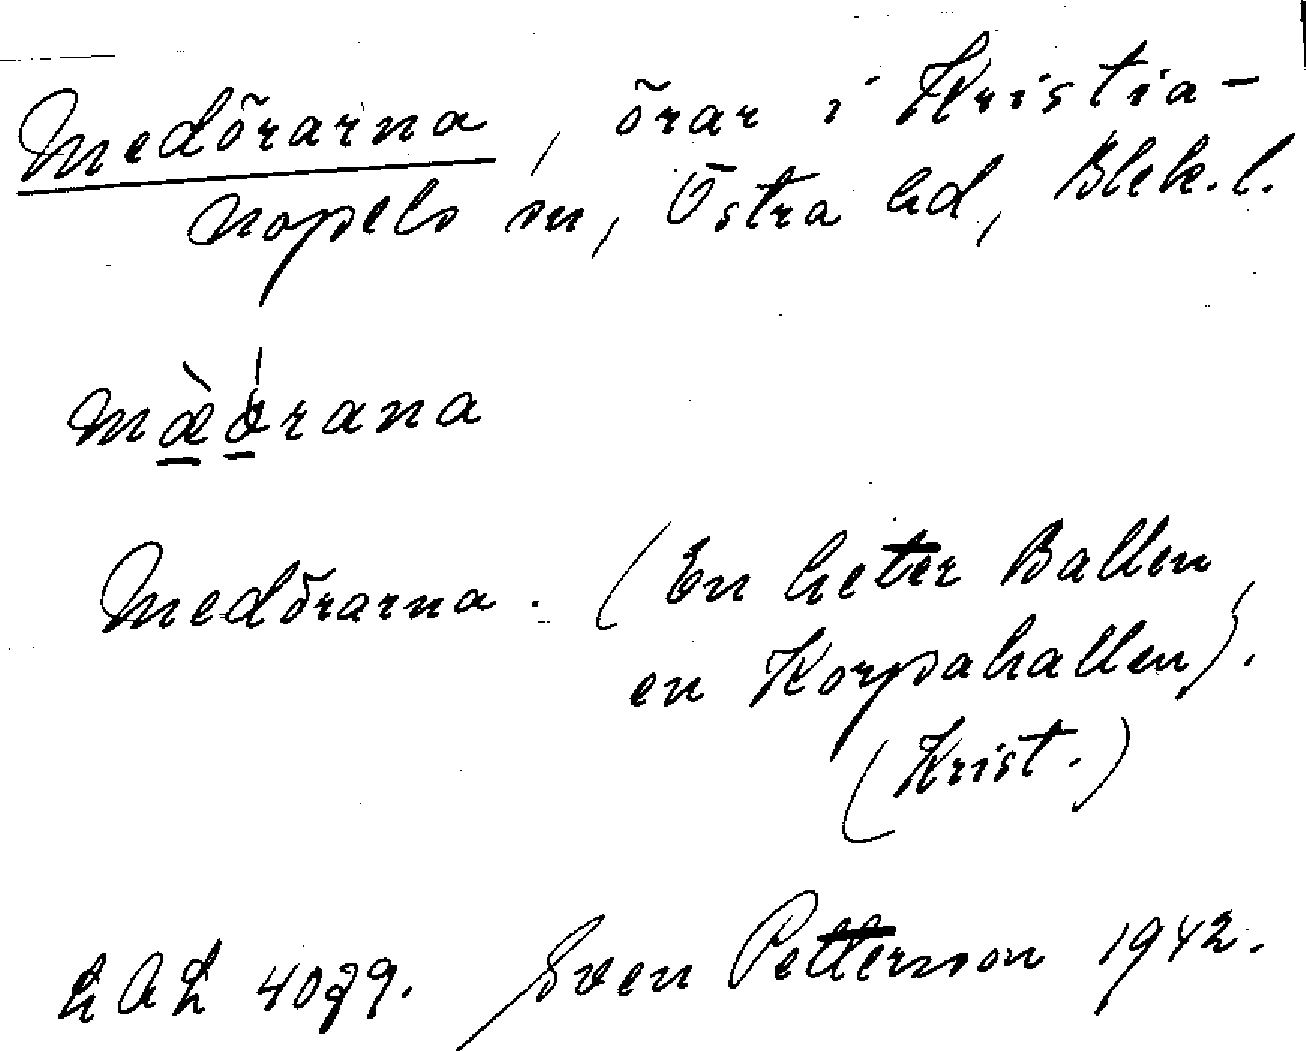 Medörarna, örar i Kristia-
nopels sn, Östra hd, Blek. l.
mæ̀ǿrana
Medörarna. (En heter Ballen,
en Korpahallen).
(Krist.)
LAL 4079. Sven Petterson 1942.